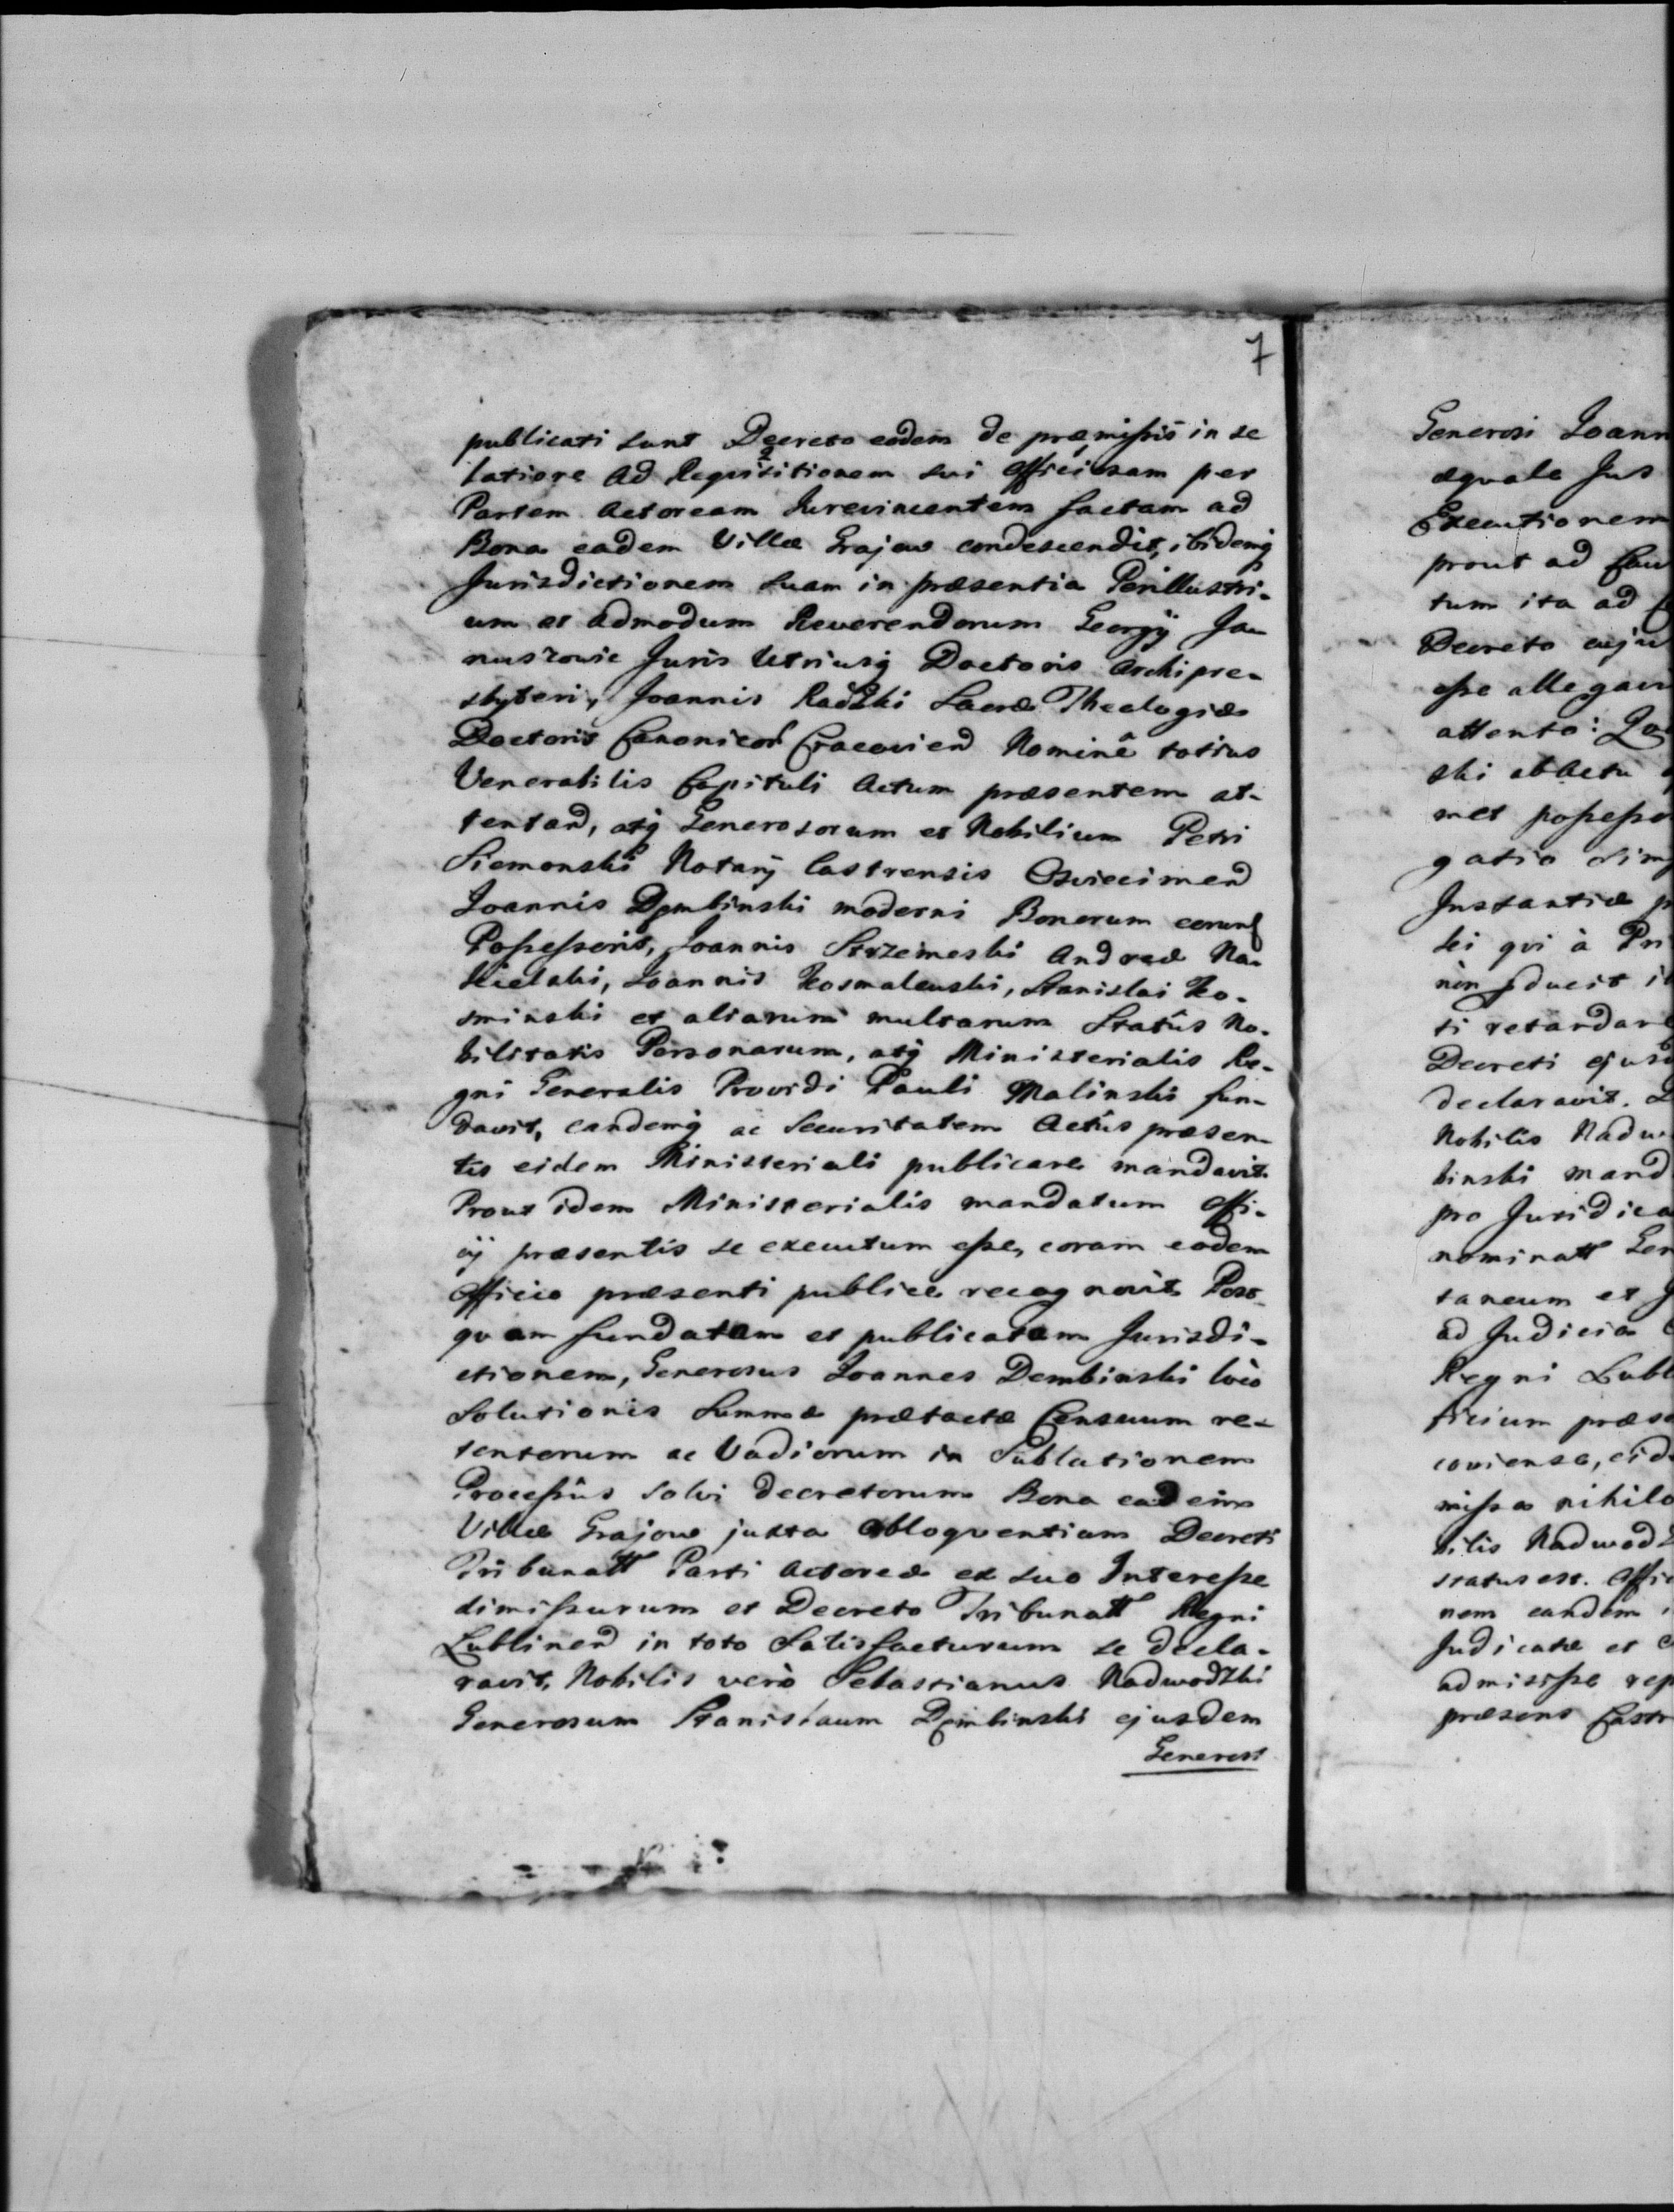 7
publicati sunt Decreto eodem de præmissis in se
latiore ad Requisitionem sui officiosam per
Partem Actoream Jurevincentem factam ad
Bona eadem Villæ Grajow condescendit, ibidemq
Jurisdictionem suam in præsentia Perillustri-
um et admodum Reverendorum Georgij Ja-
nuszowic Juris Utriusq Doctoris Archipre-
sbyteri, Joannis Radzki Sacræ Theologiæ
Doctoris Canonicor Cracovien Nominê totius
Venerabilis Capituli Actum præsentem at-
tentan, atq Generosorum et Nobilium Petri
Siemonski Notarij Castrensis Osviecimen
Joannis Dembinski moderni Bonorum eorund
Possessoris, Joannis Strzemeski Andreæ Na-
kielski, Joannis Kosmalewski, Stanislai Ko-
sminski et aliarum multarum Statûs No-
bilitatis Personarum, atq Ministerialis Re-
gni Generalis Providi Pauli Malinski fun-
davit, eandemq ac Securitatem Actûs præsen-
tis eidem Ministeriali publicare mandavit.
Prout idem Ministerialis mandatum offi-
cij præsentis se executum esse, coram eodem
officio præsenti publice recognovit. Post-
quam fundatam et publicatam Jurisdi-
ctionem, Generosus Joannes Dembinski loco
Solutionis Summæ prætactæ Censuum re-
tentorum ac Vadiorum in Sublationem
Processûs Solvi decretorum Bona eadem
Villæ Grajow juxta obloquentiam Decreti
Tribunatt Parti Actoreæ ex suo Interesse
dimissurum et Decreto Tribunatt Regni
Lublinen in toto Satisfacturum se decla-
ravit, Nobilis verò Sebastianus Nadwodzki
Generosum Stanislaum Dembinski ejusdem
Generosi
Generosi Joann
æquale Jus
Executionem
prout ad
tum ita ad
Decreto cuju
esse allegavi
attento:
ski ab Actu
met possesso
gatio sim
Instantiæ p
sei qvi à Pri
nòn educit i
ti retardar
Decreti ejusd
declaravit.
Nobilis Nadw
binski mand
pro Juridica
nominatt Gen
taneum et J
ad Judicia
Regni Lubl
ficium præs
coviense, eid
missa nihilo
bilis Nadwodz
status est. Offi
nem eandem i
Judicatæ et
admisisse rep
præsens Castr